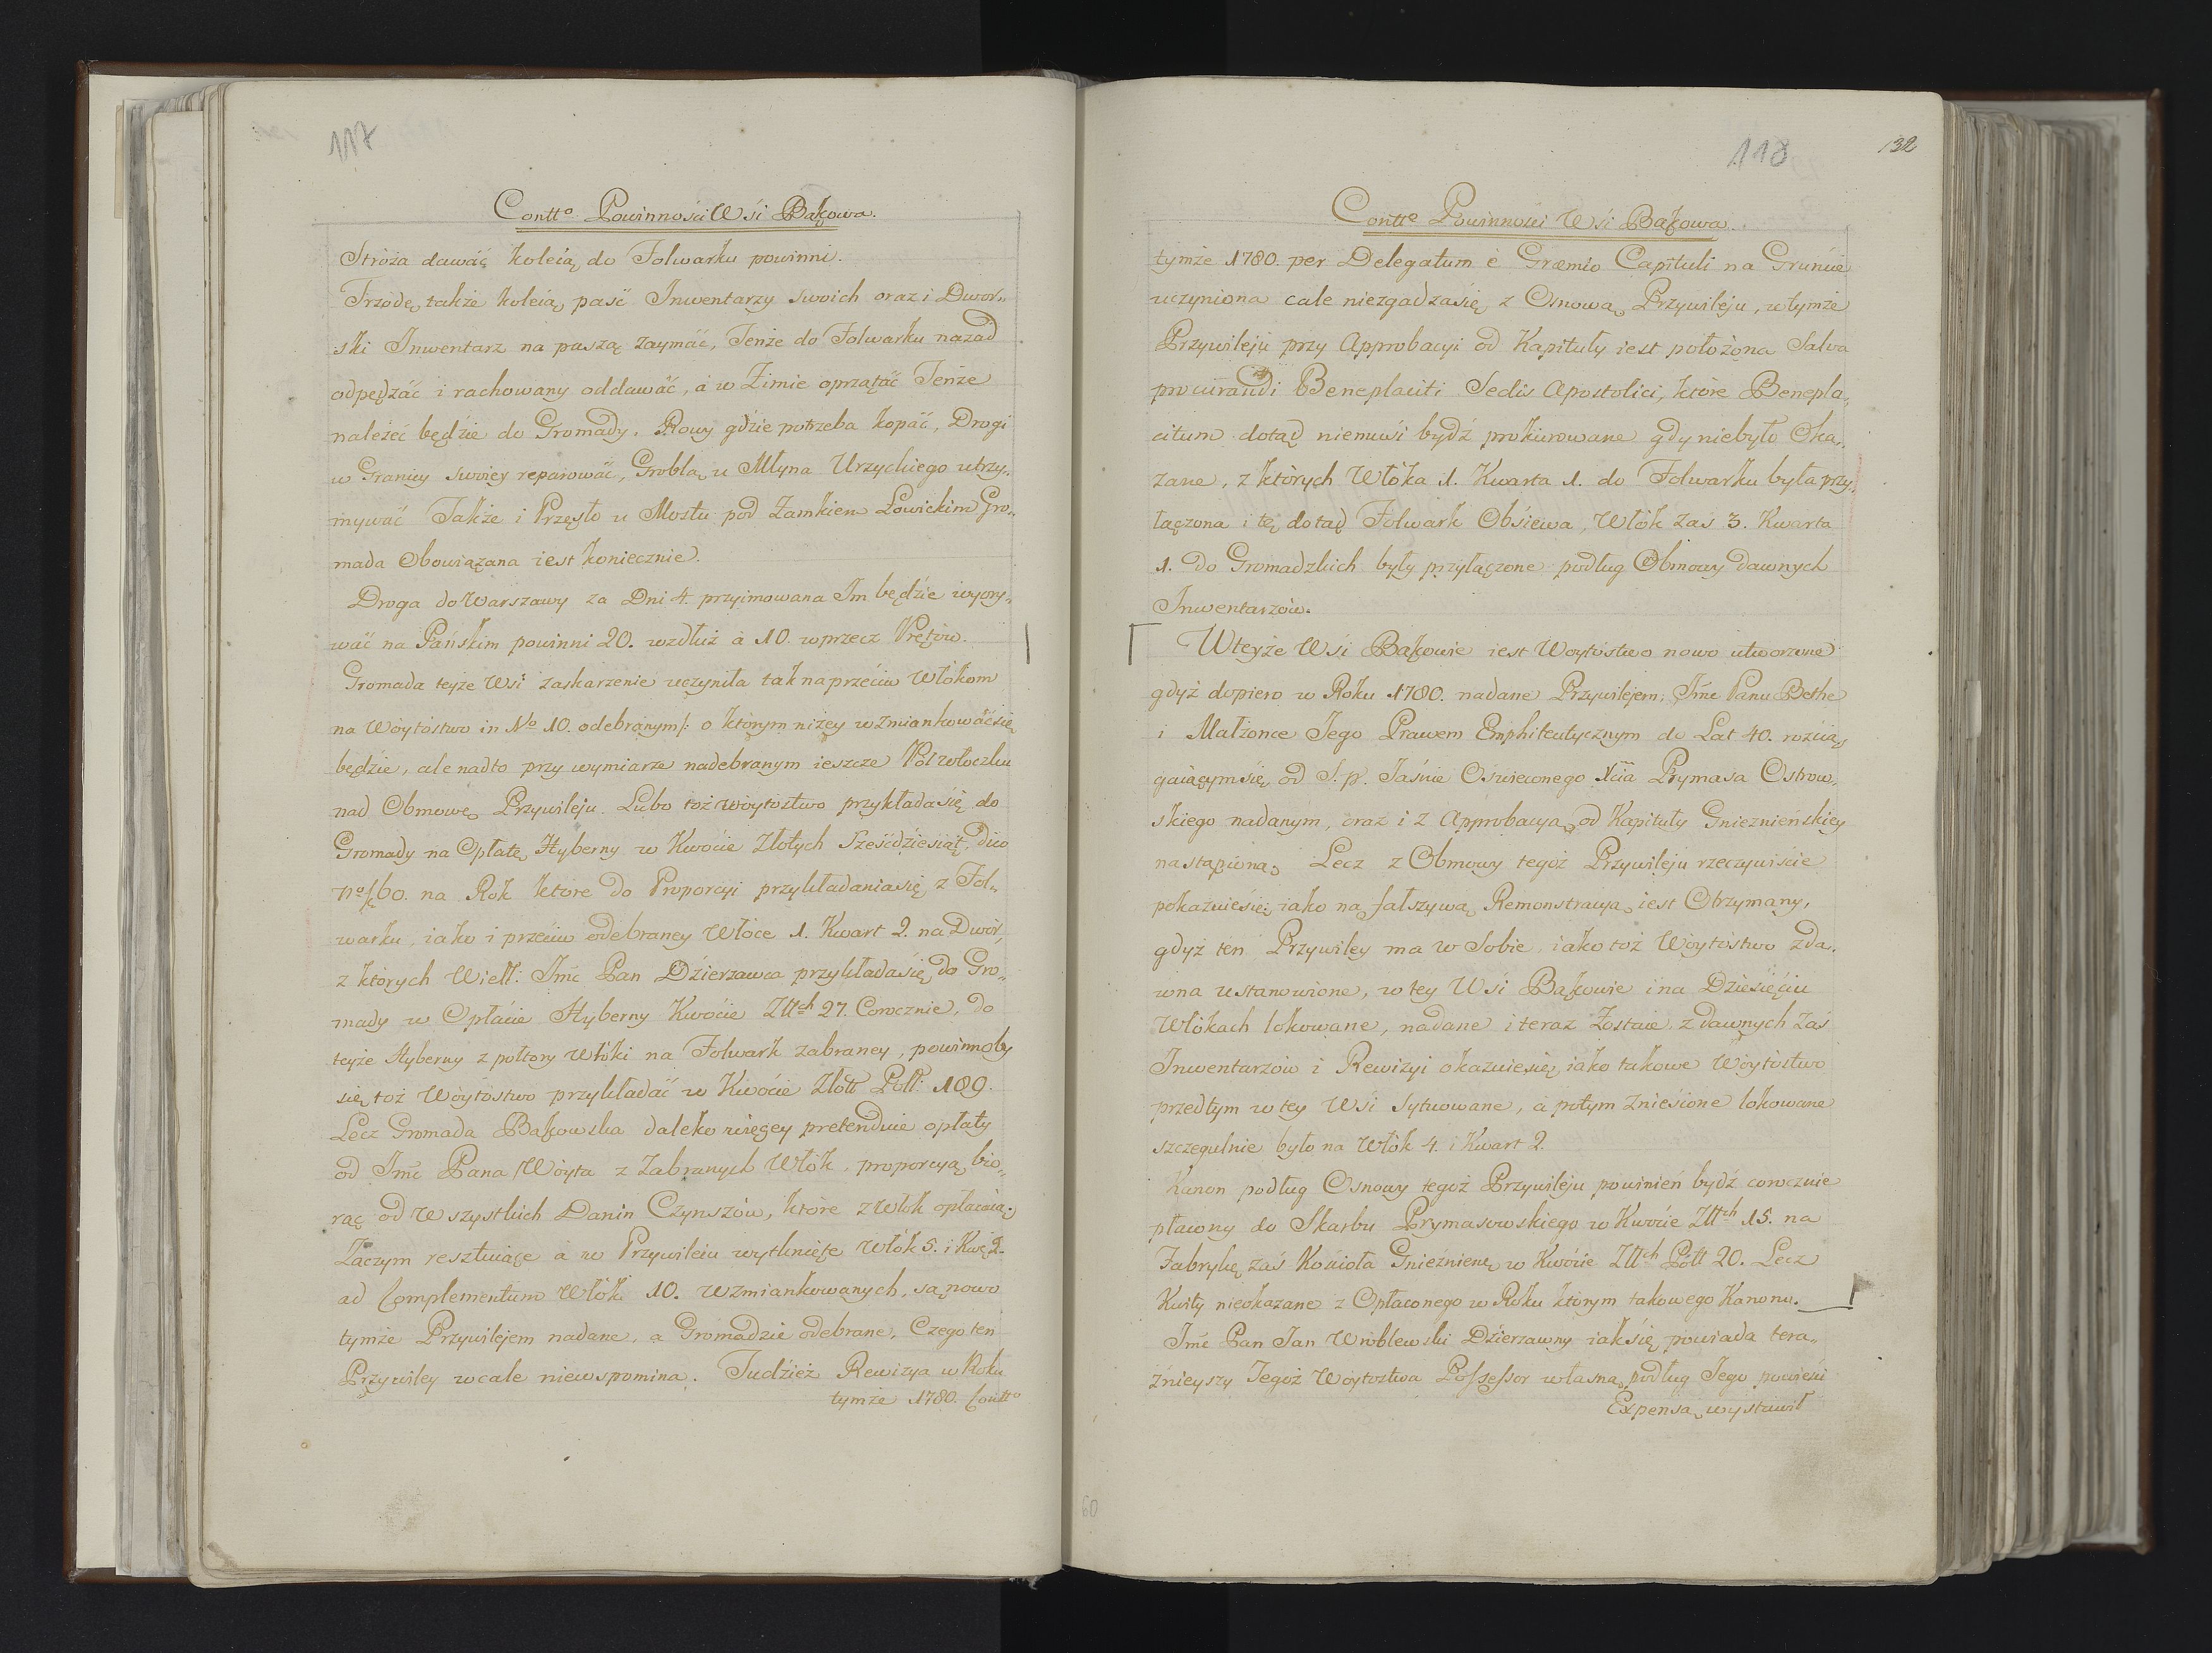 117
Contto Powinności Wsi Bąkowa.
Stróża dawać koleią do Folwarku powinni.
Trzodę także koleią paść Inwentarzy swoich oraz i Dwor„
ski Inwentarz na paszą zaymać, Tenże do Folwarku nazad
odpędzać i rachowany oddawać, a w Zimie oprzątać Tenże
należeć będzie do Gromady. Rowy gdzie potrzeba kopać, Drogi
w Granicy swoiey reparować, Groblą u Młyna Urzyckiego utrzy„
mywać Także i Przęsło u Mostu pod Zamkiem Łowickim Gro„
mada Obowiązana iest koniecznie.
Droga do Warszawy za Dni 4. przyimowana Im będzie wyory„
wać na Pańskim powinni 20. wzdłuż a 10. wprzecz Prętów.
Gromada teyże Wsi zaskarżenie uczyniła tak naprzeciw Włókom
na Wóytóstwo in No 10. odebranym/: o którym niżey wzmiankowaćsię
będzie, ale nadto przy wymiarze nadebranym ieszcze Pół włoczku
nad Obmowę Przywileju. Lubo toż wóytostwo przykładasię do
Gromady na Opłatę Hyberny w Kwocie Złotych Sześćdziesiąt, dico
No f 60. na Rok które do Proporcyi przykładaniasię z Fol„
warku, iako i przeciw odebraney Włóce 1. Kwart 2. na Dwór,
z których Wiell: Imć Pan Dzierzawca przykładasię do Gro„
mady w Opłacie Hyberny Kwócie Złłch 27. Corocznie, do
teyże Hyberny z połtory Włóki na Folwark zabraney, powinnoby
się toż Wóytóstwo przykładać w Kwócie Złott Poll: 189.
Lecz Gromada Bąkowska daleko więcey pretenduie opłaty
od Imć Pana Wóyta z Zabranych Włók, proporcyą bio„
rąc od Wszystkich Danin Czynszów, które z Włók opłacaią.
Zaczym resztuiące a w Przywileiu wytknięte Włók 5. i Kwr 2.
ad Complementum Włók 10. wzmiankowanych, są nowo
tymże Przywilejem nadane, a Gromadzie odebrane, Czego ten
Przywiley wcale niewspomina. Tudzież Rewizya w Roku
tymże 1780. Contto
118
132
Contto Powinności Wsi Bąkowa.
tymże 1780. per Delegatum è Græmio Capituli na Gruncie
uczyniona cale niezgadzasię z Osnową Przywileju, wtymże
Przywileju przy Approbacyi od Kapituły iest położona Salva
procurandi Beneplaciti Sedis Apostolici, które Benepla„
citum dotąd niemusi bydź prokurowane gdy niebyło Oka„
zane, z których Włóka 1. Kwarta 1. do Folwarku była przy„
łączona i tę dotąd Folwark Obsiewa, Włók zaś 3. Kwarta
1. do Gromadzkich były przyłączone podług Obmowy dawnych
Inwentarzów.
Wteyże Wsi Bąkowie iest Woytóstwo nowo utworzone
gdyż dopiero w Roku 1780. nadane Przywilejem, Imć Panu Bethe
i Małżonce Jego Prawem Emphiteutycznym do Lat 40. rozcią„
gaiącymsię od S. p. Jaśnie Oswieconego Xcia Prymasa Ostrow„
skiego nadanym, oraz i z Approbacyą od Kapituły Gnieznieńskiey
nastąpioną. Lecz z Obmowy tegoż Przywileju rzeczywiście
pokazuiesię, iako na fałszywą Remonstracyą iest Otrzymany,
gdyż ten Przywiley ma w Sobie, iako toż Wóytóstwo zda„
wna ustanowione, w tey Wsi Bąkowie i na Dziesięciu
Włókach lokowane, nadane i teraz Zostaie, z dawnych zaś
Inwentarzów i Rewizyi okazuiesię, iako takowe Wóytóstwo
przedtym w tey Wsi sytuowane, a potym zniesione lokowane
szczegulnie było na Włók 4. i Kwart 2.
Kanon podług Osnowy tegoż Przywileju powinień bydź corocznie
płacony do Skarbu Prymasowskiego w Kwócie Złłch 15. na
Fabrykę zaś Kościoła Gnieźnienę w Kwócie Złłch Poll 20. Lecz
Kwity nieokazane z Opłaconego w Roku którym takowego Kanonu.
Imć Pan Jan Wróblewski Dzierzawny iaksię powiada tera„
źnieyszy Tegoż Wóytostwa Possessor własną podług Jego powieści
Expensą wystawił
60